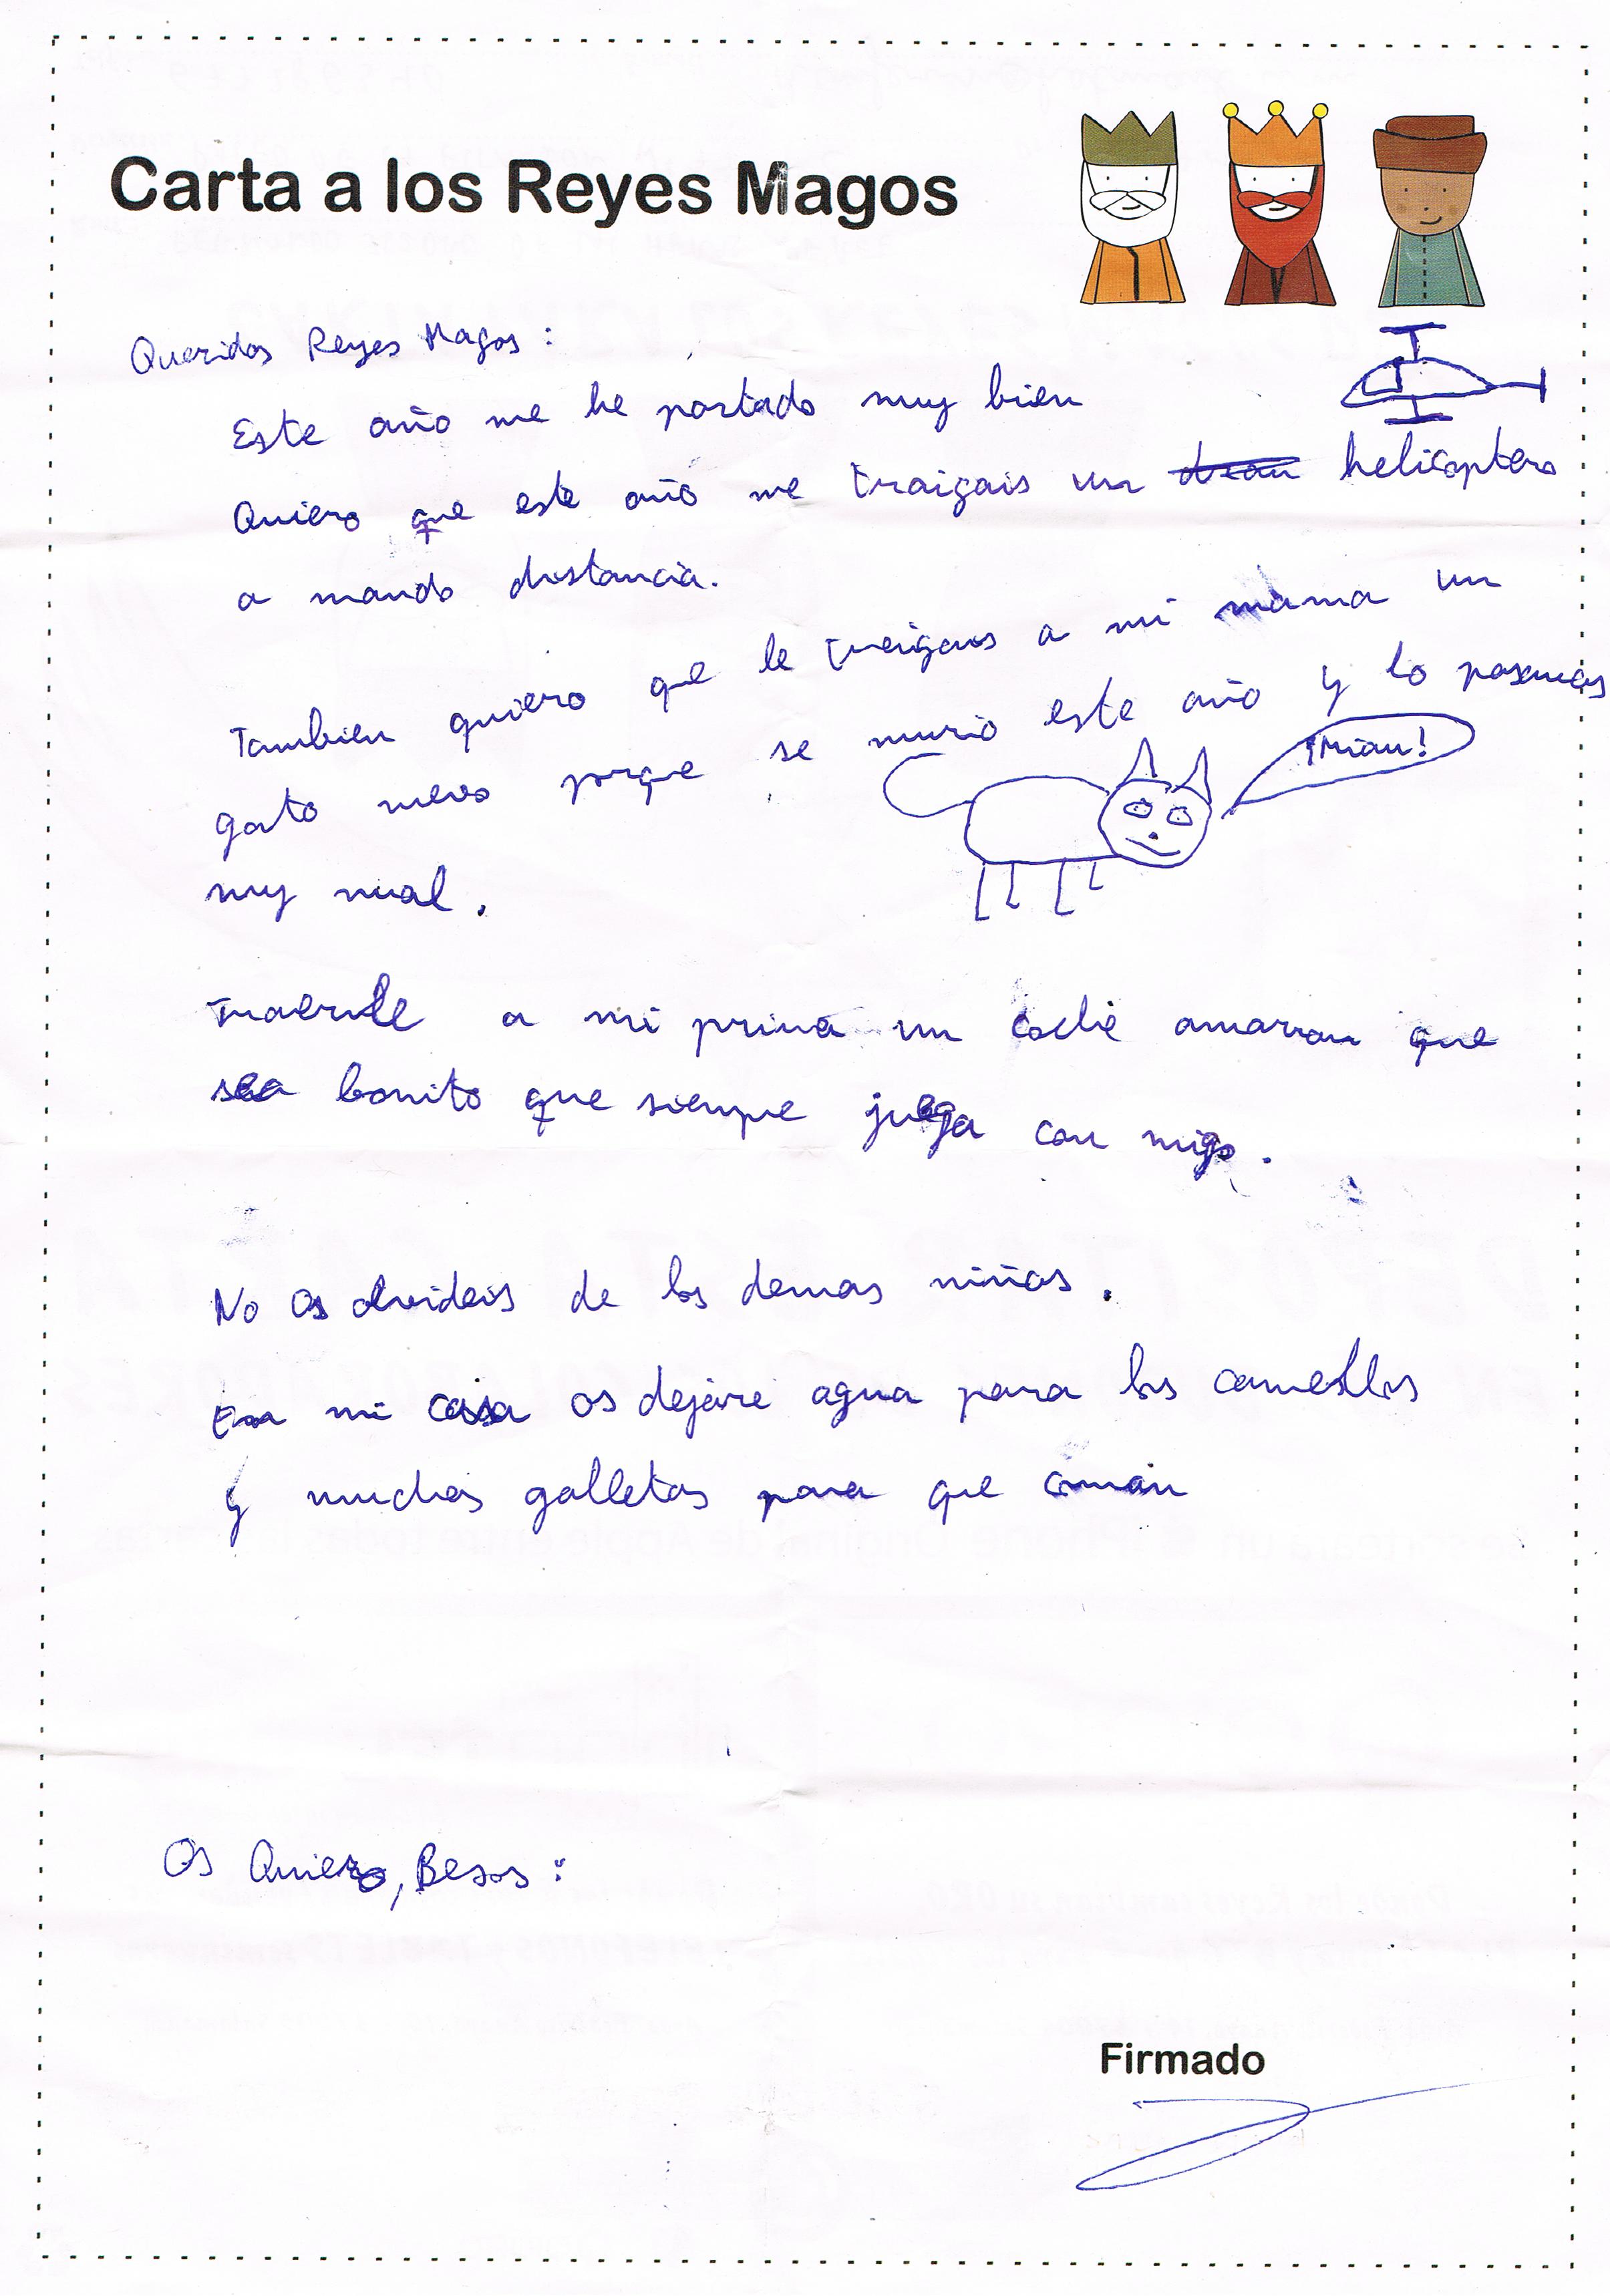 Carta a los Reyes Magos
Queridos Reyes Magos :
Este año me he portado muy bien
Quiero que este año me traigais un dron helicoptero
a mando distancia.
Tambien quiero que le traigais a mi mama un
gato nuevo porque se murio este año y lo pasamos
¡Miau!
muy mal .
traerle a mi prima un coche amarron que
sea bonito que siempre juega con migo .
No os olvideis de los demas niños .
En mi casa os dejare agua para los camellos
y muchas galletas para que coman
Os Quiero, Besos :
Firmado